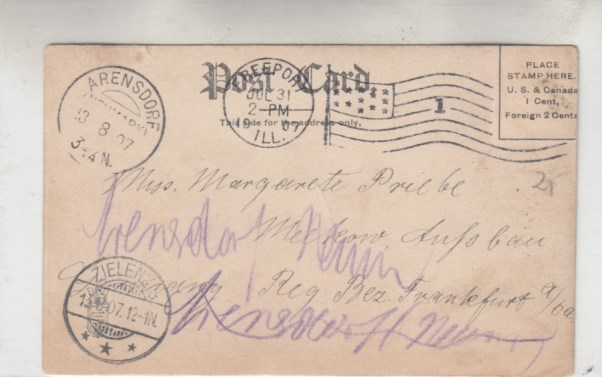 Post Card.
This side for the address only.
PLACE
STAMP HERE.
U. S. & Canada
1 Cent,
Foreign 2 Cents
FREEPORT
JUL 31
2-PM
1907
ILL.
1
ARENSDORF
13 8 07
3-4 N.
25
Miss. Margarete Priebe
Arensdorf Neum
Germany Reg Bez. Frankfurt a/Od
ZIELENZIG
07. 12-1N.
Arensdorf Neum